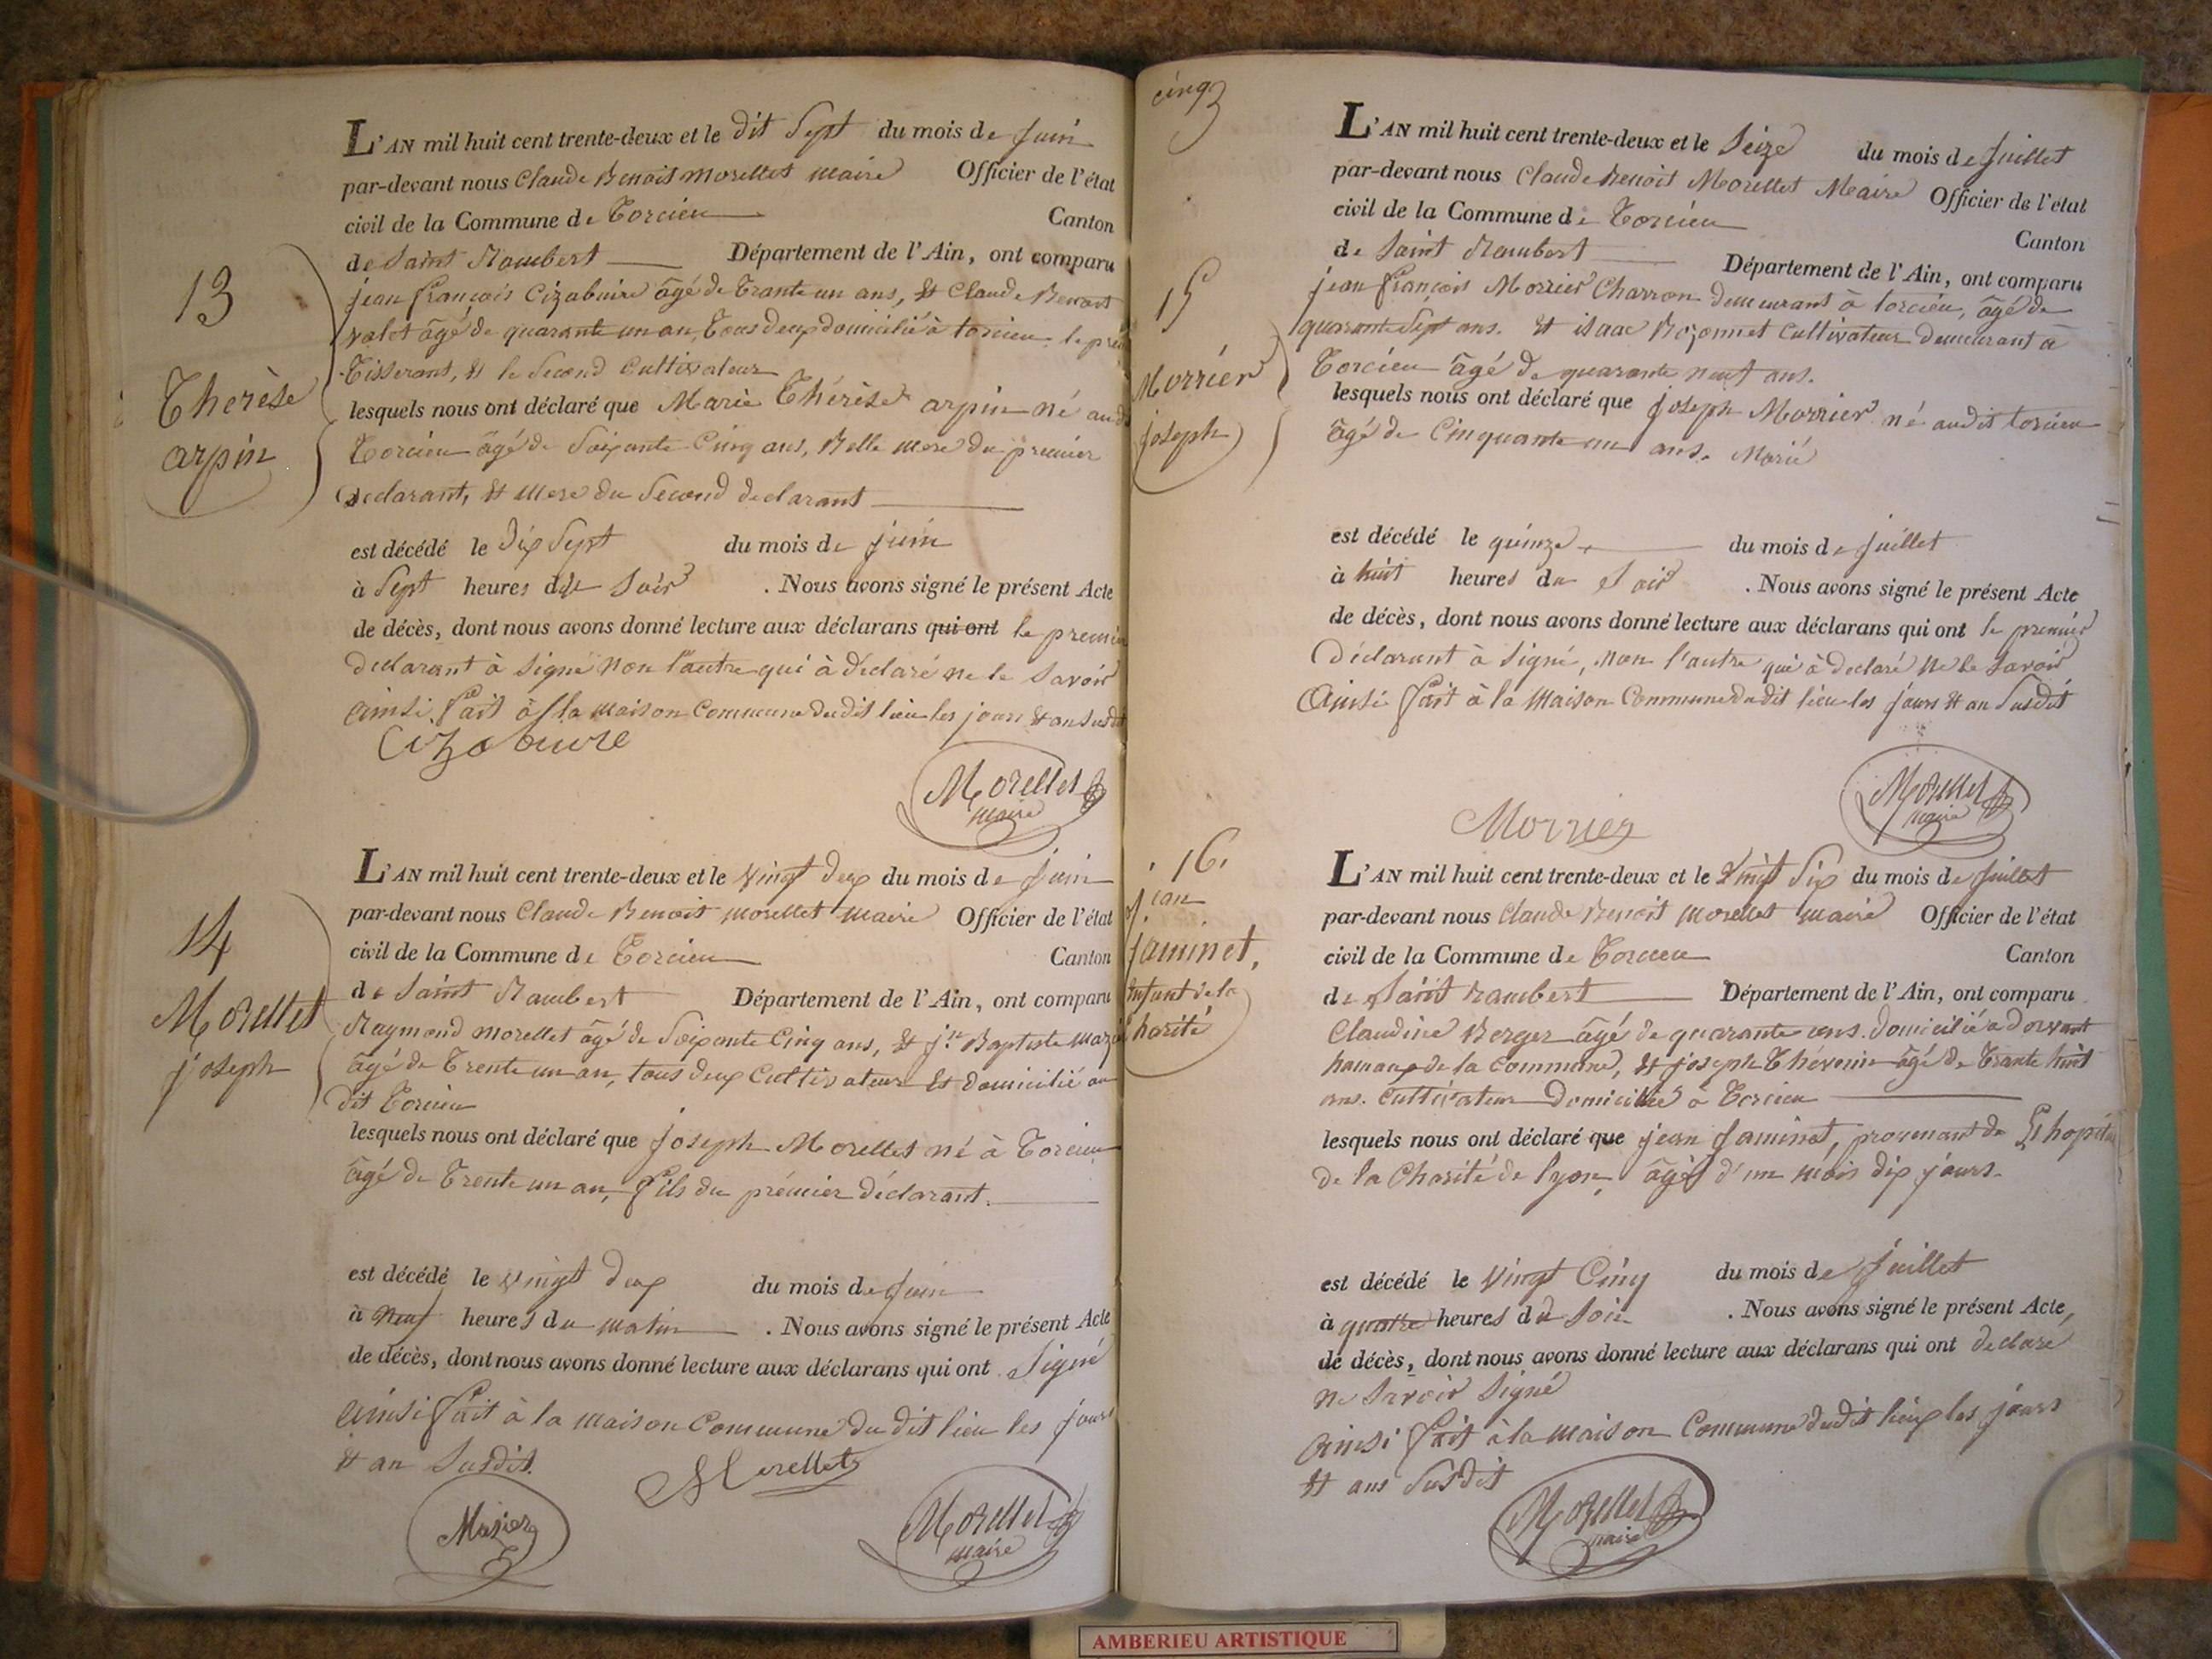 13
Therèse
arpin
L'AN mil huit cent trente-deux et le dit Sept du mois de Juin
par-devant nous Claude Benoit Morellet Maire Officier de l'état
civil de la Commune de Torcieu Canton
de Saint Rambert Département de l'Ain, ont comparu
jean françois Cizabuire âgé de Trante un ans, et Claude Benoit
valet âgé de quarante un an, Tous deux domicilié à torcieu le
Tisserant, et le Second Cultivateur
lesquels nous ont déclaré que Marie Thérèse arpin né
Torcieu âgé de Soixante Cinq ans, Belle mere du premier
declarant, et mere du Second declarant
est décédé le dix Sept du mois de juin
à Sept heures du Soir . Nous avons signé le présent Acte
de décès, dont nous avons donné lecture aux déclarans qui ont le premier
declarant à Signé non l'autre qui à déclaré ne le Savoir
ainsi fait à la maison Commune dudit lieu les jours et an Susdit
Cizabuire
Morellet
maire
14
Morellet
joseph
L'AN mil huit cent trente-deux et le Vingt deux du mois de Juin
par-devant nous Claude Benoit Morellet Maire Officier de l'état
civil de la Commune de Torcieu Canton
de Saint Rambert Département de l'Ain, ont comparu
Raymond Morellet âgé de Soixante Cinq ans, et jn Baptiste
âgé de Trente un an, tous deux Cultivateur Et domicilié au
dit Torcieu
lesquels nous ont déclaré que joseph Morellet né à Torcieu
âgé de Trente un an, fils du prémier déclarant.
est décédé le vingt deux du mois de Juin
à neuf heures du matin . Nous avons signé le présent Acte
de décès, dont nous avons donné lecture aux déclarans qui ont Signé
ainsi fait à la maison Commune du dit lieu les jours
et an Susdit.
Morellet
Mazier
Morellet
maire
cinq
15
Morrier
joseph
L'AN mil huit cent trente-deux et le Seize du mois de Juillet
par-devant nous Claude Benoit Morellet Maire Officier de l'état
civil de la Commune de Torcieu Canton
de Saint Rambert Département de l'Ain, ont comparu
jean françois Morrier Charron demeurant à torcieu, âgé de
quarante Sept ans. Et isaac Bozonnet Cultivateur Demeurant à
Torcieu âgé de quarante neuf ans.
lesquels nous ont déclaré que joseph Morrier né audit torcieu
âgé de Cinquante un ans. Marié
est décédé le quinze du mois de Juillet
à huit heures du Soir . Nous avons signé le présent Acte
de décès, dont nous avons donné lecture aux déclarans qui ont le premier
Déclarant à Signé, non l'autre qui à declaré ne le Savoir
Ainsi fait à la Maison Commune dudit lieu les jours et an Susdit
Morrier
Morellet
maire
16.
jean
jaminet,
Enfant de la
harité
L'AN mil huit cent trente-deux et le Vingt Six du mois de Juillet
par-devant nous Claude Benoit Morellet Maire Officier de l'état
civil de la Commune de Torcieu Canton
de Saint rambert Département de l'Ain, ont comparu
Claudine Berger âgé de quarante ans. domicilié a dorvant
hamaux de la commune, et joseph Thevenin âgé de Trante huit
ans. Cultivateur Domicilié à Torcieu
lesquels nous ont déclaré que jean Jaminet, provenant de
de la Charité de lyon, âgé d'un mois dix jours.
est décédé le Vingt Cinq du mois de Juillet
à quatre heures du Soir . Nous avons signé le présent Acte,
de décès, dont nous avons donné lecture aux déclarans qui ont declaré
ne Savoir Signé
ainsi fait à la maison Commune dudit lieux les jours
et ans Susdit
Morellet
maire
AMBERIEU ARTISTIQUE